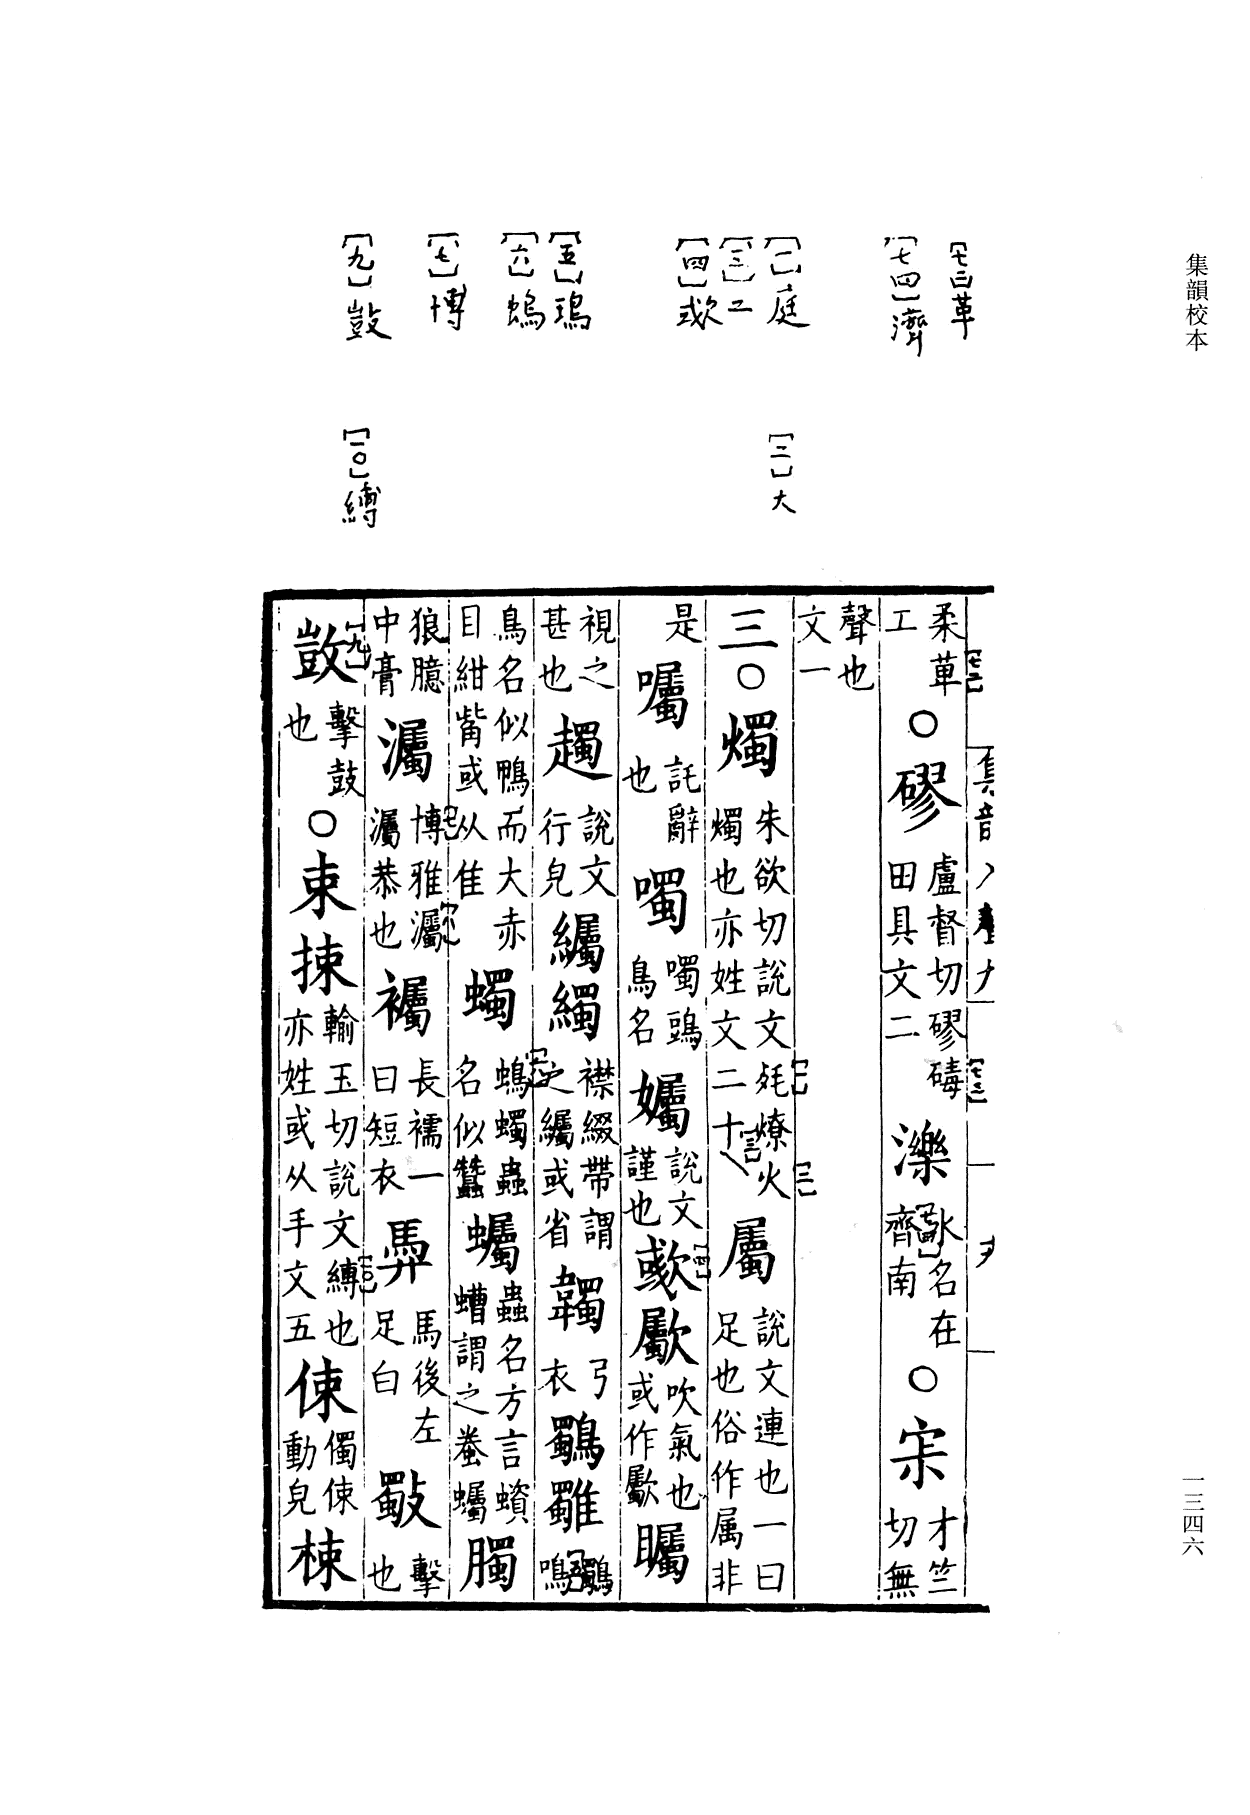 集韻校本
一三四六
[七三]革
[七四]濟
[一]庭
[二]大
[三]工
[四]歘
[五]鴀
[六]䲧
[七]博
[九]鼓
[一〇]縛
柔革工〇磟盧督切磟碡田具文二濼水名在齊南〇宋才竺切無
聲也文一
三〇燭朱欲切說文庭燎火燭也亦姓文二十八屬說文連也一曰足也俗作属非
是囑託辭也噣噣鴀鳥名孎說文謹也歘歜吹氣也或作歜矚
視之甚也趯說文行皃䌵襡襟綴帶謂之䌵或省韣弓衣鸀雖鸀鳿
鳥名似鴨而大赤目紺觜或从隹蠋䲧蠋蟲名似蠶蠾蟲名方言蝳蝓謂之蠾臅
狼臆中膏灟博雅灟灟恭也襡長襦一曰短衣馵馬後左足白斀擊也
鼓擊鼓也〇束捒輸玉切說文縛也亦姓或从手文五倲儥倲動皃梀